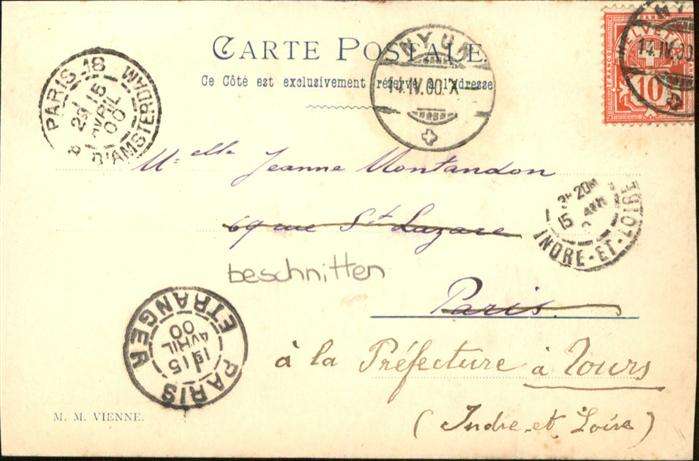 CARTE POSTALE
Ce Côté est exclusivement réservé à l'adresse
NYON
14.IV.00.X
HELVETIA
FRANCO
10
NYON
14.IV.00
PARIS 18
R. D'AMSTERDAM
15
AVRIL
00
Melle Jeanne Montandon
69 rue St Lazare
Paris
3E 20M
15
INDRE-ET-LOIRE
beschnitten
PARIS
ETRANGER
15
AVRIL
00
à la Préfecture à Tours
(Indre et Loire)
M. M. VIENNE.